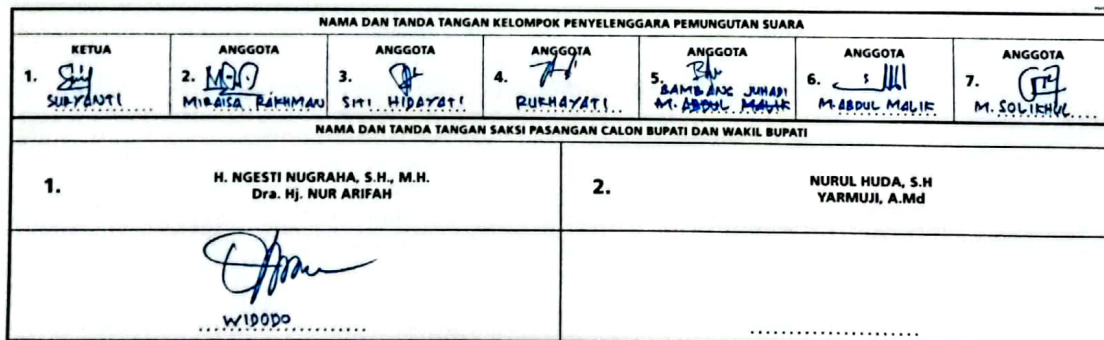 NAMA DAN TANDA TANGAN KELOMPOK PENYELENGGARA PEMUNGUTAN SUARA
KETUA ANGGOTA ANGGOTA ANGGOTA ANGGOTA ANGGOTA ANGGOTA
1. 2. 3. 4. 5. 6. 7.
SURYANTI MIRAISA RAKHMAN SITI HIDAYATI RUKHAYATI BAMBANG JUHADI M. ABDUL MALIK M. SOLIKHUL
M. ABDUL MALIK
NAMA DAN TANDA TANGAN SAKSI PASANGAN CALON BUPATI DAN WAKIL BUPATI
1. H. NGESTI NUGRAHA, S.H., M.H. 2. NURUL HUDA, S.H
Dra. Hj. NUR ARIFAH YARMUJI, A.Md
WIDODO